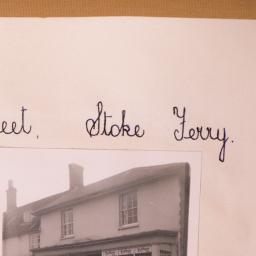 eet, Stoke Ferry.